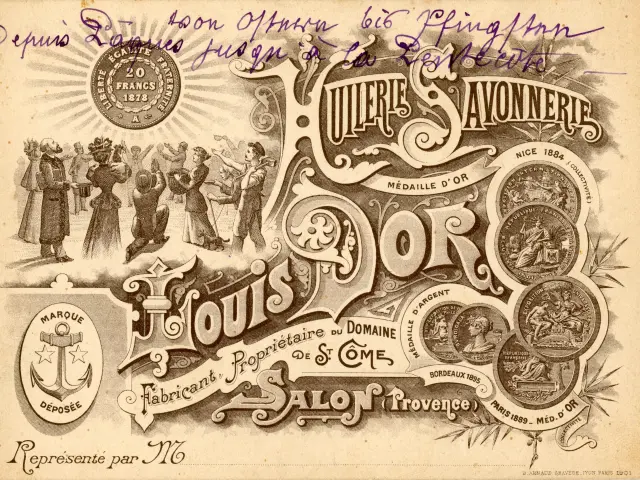 von Ostern bis Pfingsten
Depuis Pâques jusqu'à la Pentecôte
LIBERTÉ ÉGALITÉ FRATERNITÉ
20
FRANCS
1878
A
HUILERIE SAVONNERIE
MÉDAILLE D'OR
NICE 1884 (COLLECTIVITÉ)
LOUIS D'OR
MARQUE
DÉPOSÉE
Fabricant, Propriétaire DU DOMAINE
DE ST CÔME
MÉDAILLE D'ARGENT
BORDEAUX 1895
PARIS 1889 - MÉD. D'OR
SALON (Provence)
Représenté par M